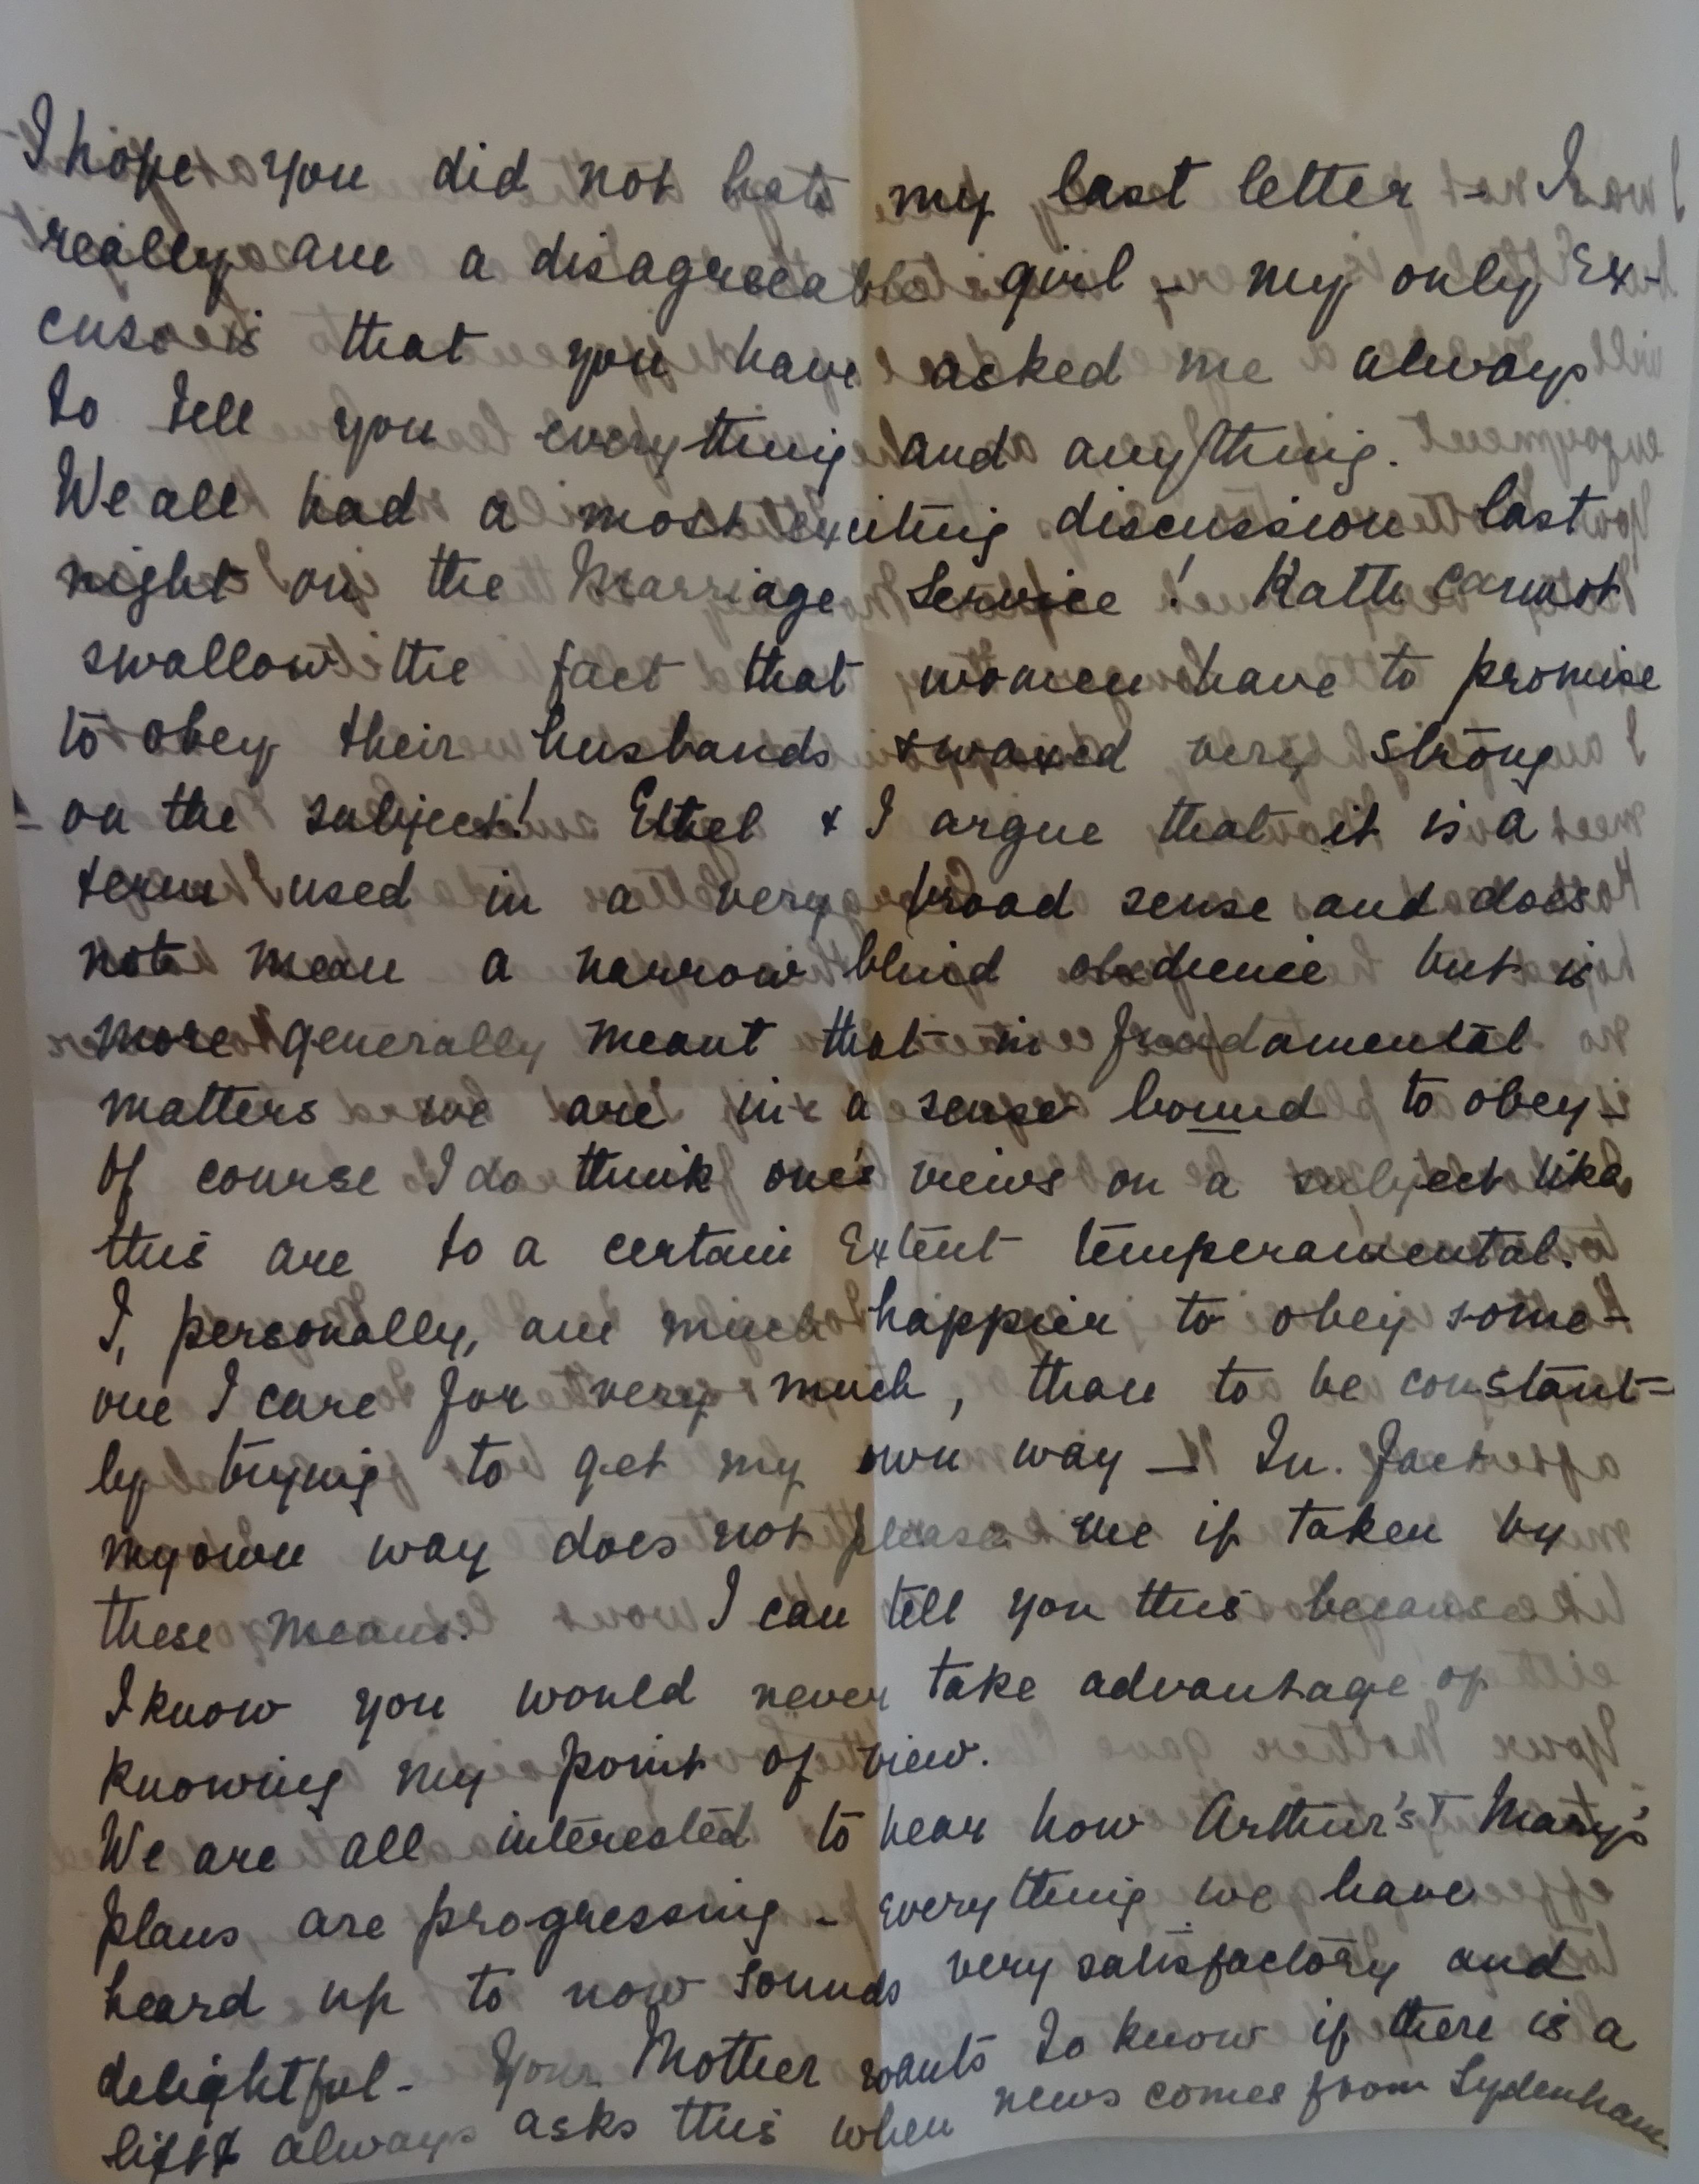 I hope you did not hate my last letter - I
really am a disagreeable girl - my only ex-
cuse is that you have asked me always
to tell you everything and anything.
We all had a most exciting discussion last
night on the Marriage Service! Kath cannot
swallow the fact that women have to promise
to obey their husbands & waxed very strong
on the subject! Ethel & I argue that it is a
term used in a very broad sense and does
not mean a narrow blind obedience but is
more generally meant that in fundamental
matters we are in a sense bound to obey -
Of course I do think one's views on a subject like
this are to a certain extent temperamental.
I, personally, am much happier to obey some-
one I care for very much, than to be constant-
ly trying to get my own way - In fact
my own way does not please me if taken by
these means. I can tell you this because
I know you would never take advantage of
knowing my point of view.
We are all interested to hear how Arthur's & Mary's
plans are progressing - everything we have
heard up to now sounds very satisfactory and
delightful - Your Mother wants to know if there is a
lift & always asks this when news comes from Sydenham